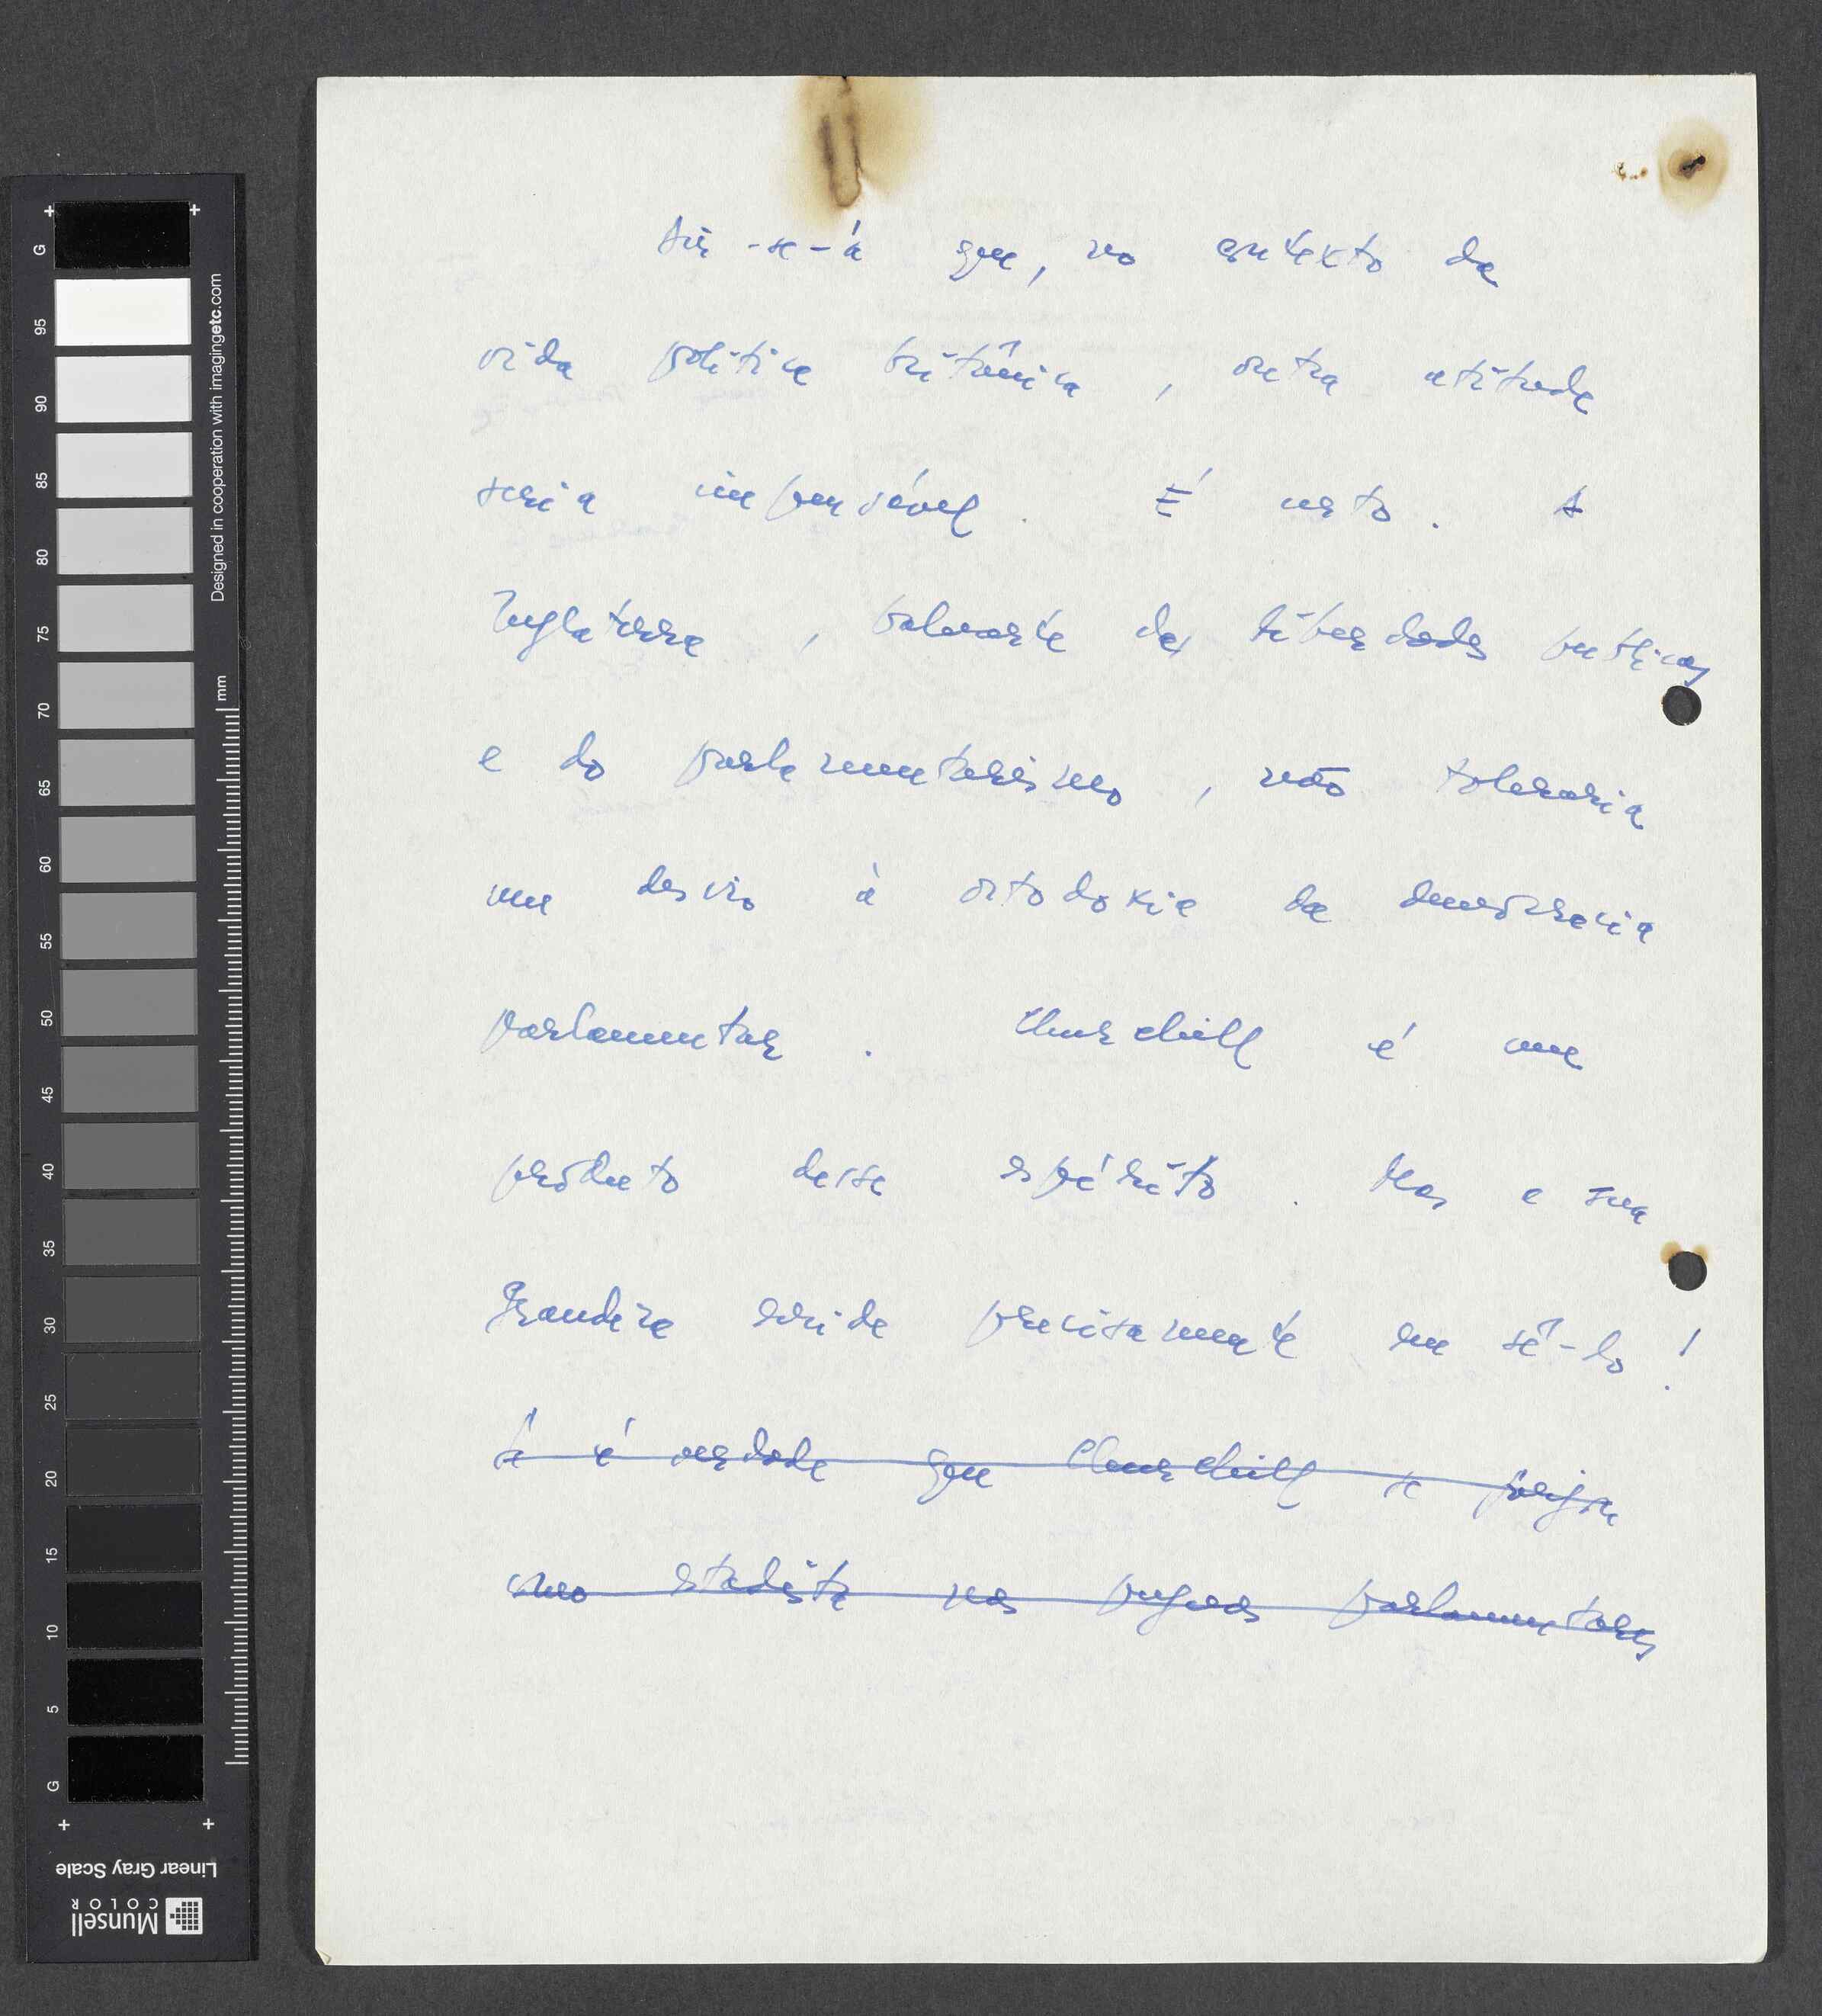 Dir-se-á que, no contexto da
vida política britânica, outra atitude
seria impensável. É certo. A
Inglaterra, baluarte das liberdades publicas
e do parlamentarismo, não toleraria
um desvio à ortodoxia da democracia
parlamentar. Churchill é um
produto desse espírito. Mas a sua
grandeza reside precisamente em sê-lo!
Se é verdade que Churchill se forja
como estadista nas pugnas parlamentares
G
95
90
85
80
75
70
65
60
55
50
45
40
35
30
25
20
15
10
5
G
Designed in cooperation with imagingetc.com
mm
Linear Gray Scale
Munsell
COLOR